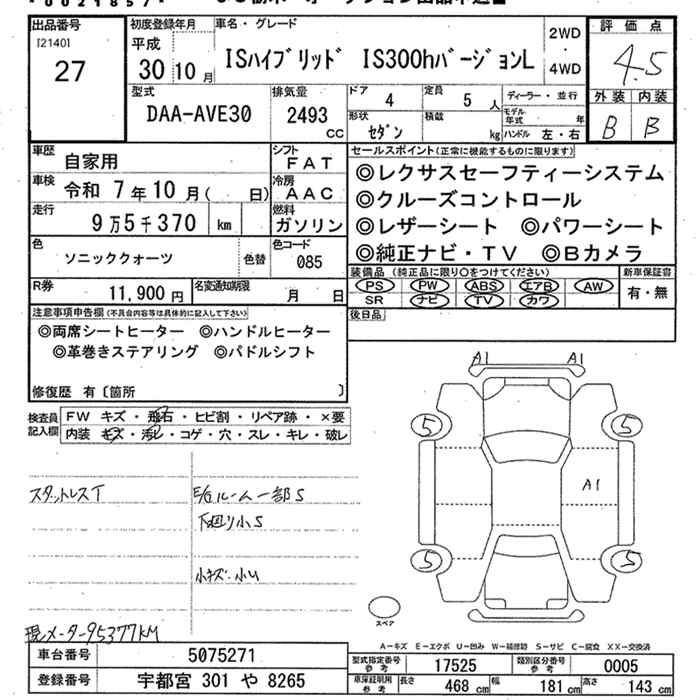 出品番号
[2140]
27
初度登録年月
平成
30年10月
車名・グレード
ISハイブリッド IS300hバージョンL
2WD
・
4WD
評価点
4.5
外装 内装
B B
型式
DAA-AVE30
排気量
2493
CC
ドア
4
定員
5人
ディーラー・並行
形状
セダン
積載
kg
モデル年式 年
ハンドル 左・右
車歴
自家用
シフト
FAT
車検
令和 7年10月( 日)
冷房
AAC
走行
9万5千370 km
燃料
ガソリン
色
ソニッククォーツ
色替
色コード
085
R券
11,900円
名変通知期限
月 日
セールスポイント(正常に機能するものに限ります)
◎レクサスセーフティーシステム
◎クルーズコントロール
◎レザーシート ◎パワーシート
◎純正ナビ・TV ◎Bカメラ
装備品 (純正品に限り○をつけてください)
PS PW ABS エアB AW
SR ナビ TV カワ
新車保証書
有・無
後日品
注意事項申告欄(不具合内容等は具体的に記入して下さい)
◎両席シートヒーター ◎ハンドルヒーター
◎革巻きステアリング ◎パドルシフト
修復歴 有〔箇所 〕
検査員記入欄
FW キズ・飛石・ヒビ割・リペア跡・×要
内装 キズ・汚レ・コゲ・穴・スレ・キレ・破レ
スタットレスT
E/Gルーム一部S
下廻り小S
小キズ・小U
現メーター95377KM
A1 A1
5 5
A1
5 5
スペア
A-キズ E-エクボ U-凹み W-補修跡 S-サビ C-腐食 XX-交換済
車台番号
5075271
登録番号
宇都宮 301 や 8265
型式指定番号
参考
17525
類別区分番号
参考
0005
車庫証明用
参考
長さ 468 cm 幅 181 cm 高さ 143 cm